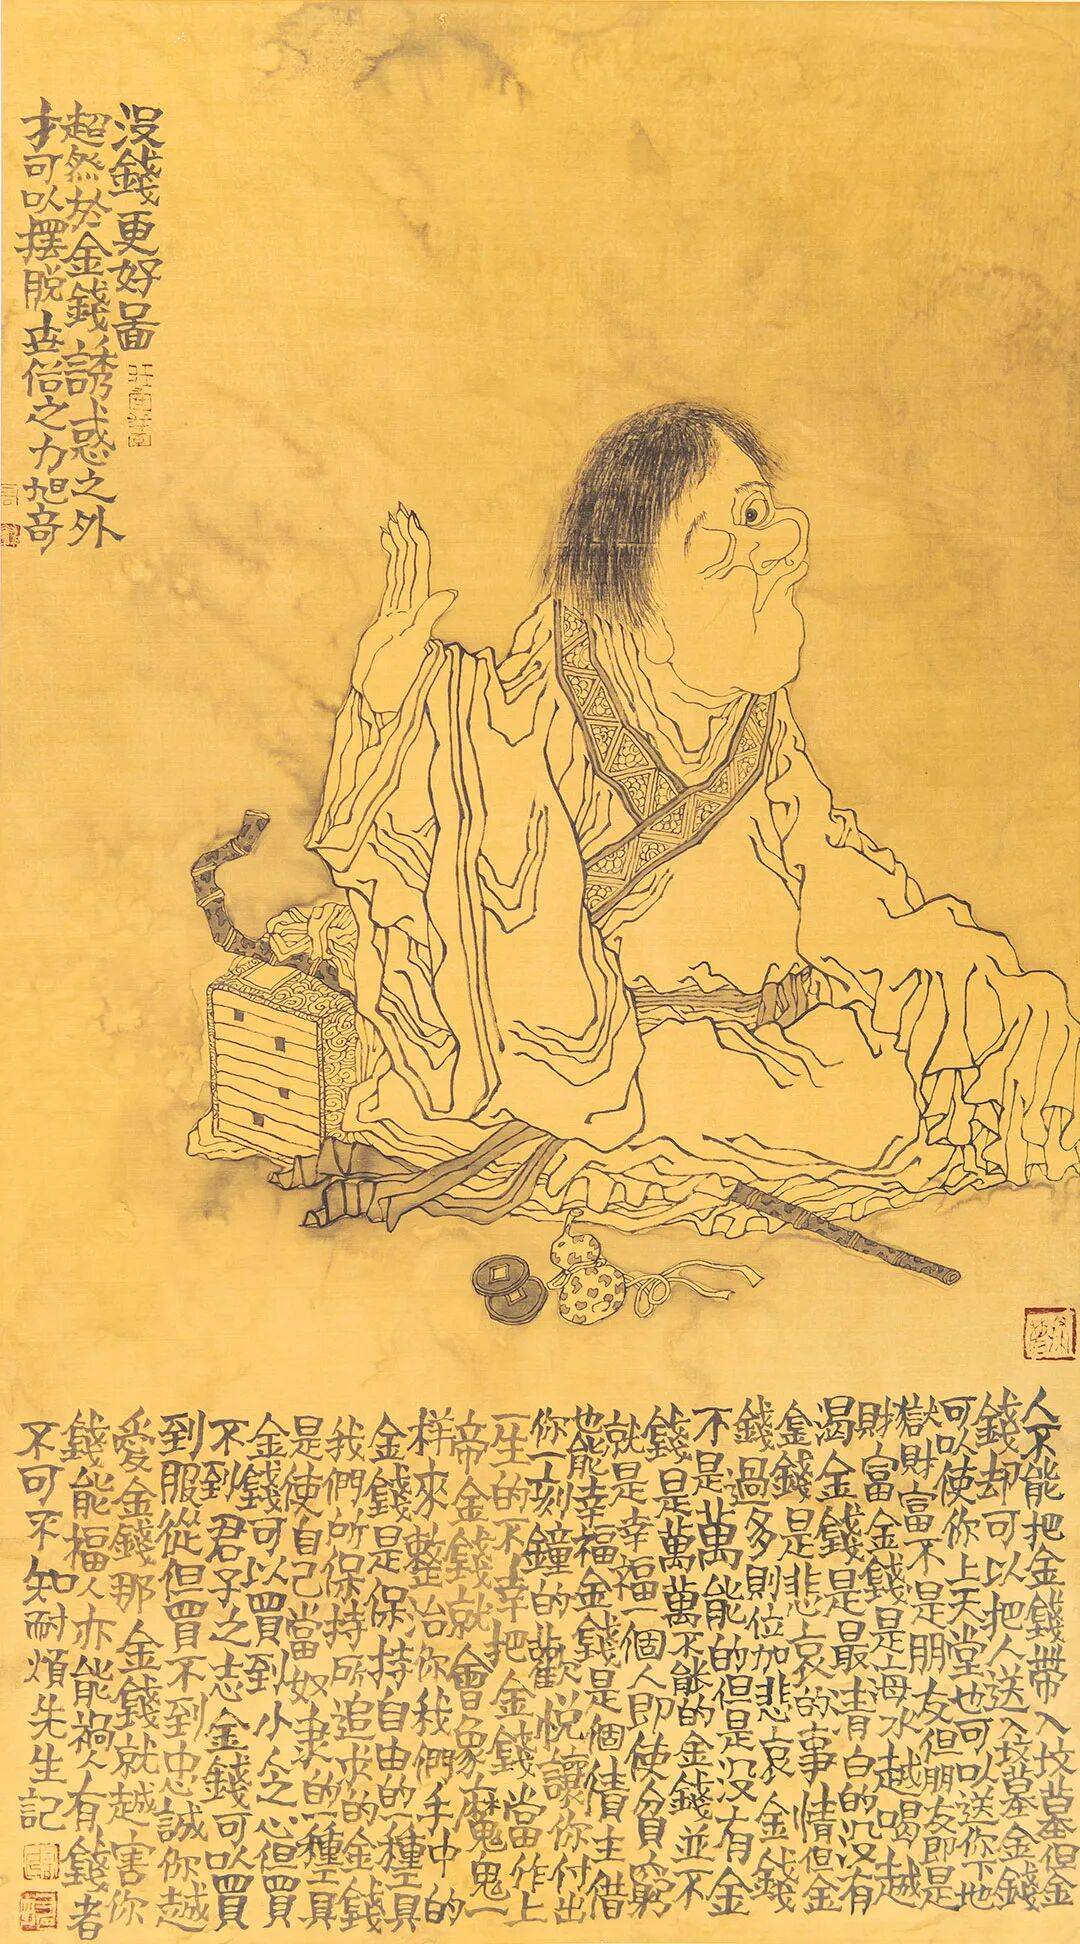 没錢更好啚
超然於金錢誘惑之外
才可以摆脱世俗之力旭奇
人不能把金錢帶入坟墓但金
錢却可以把人送入坟墓金錢
可以使你上天堂也可以送你下地
獄財富不是朋友但朋友即是
財富金錢是海水越喝越
渴金錢是最清白的没有
金錢是悲哀的事情但金
錢過多則位加悲哀金錢
不是萬能的但是没有金
錢是萬萬不能的金錢並不
就是幸福一個人即使貧窮
也能幸福金錢是個債主借
你一刻鐘的歡悦讓你付出
一生的不幸把金錢當作上
帝金錢就會象魔鬼一
样來整治你我們手中的
金錢是保持自由的一種工具
我們所保持所追求的金錢
是使自己當奴隶的一種工具
金錢可以買到小人之心但買
不到君子之志金錢可以買
到服從但買不到忠誠你越
愛金錢那金錢就越害你
錢能福人亦能禍人有錢者
不可不知耐煩先生記